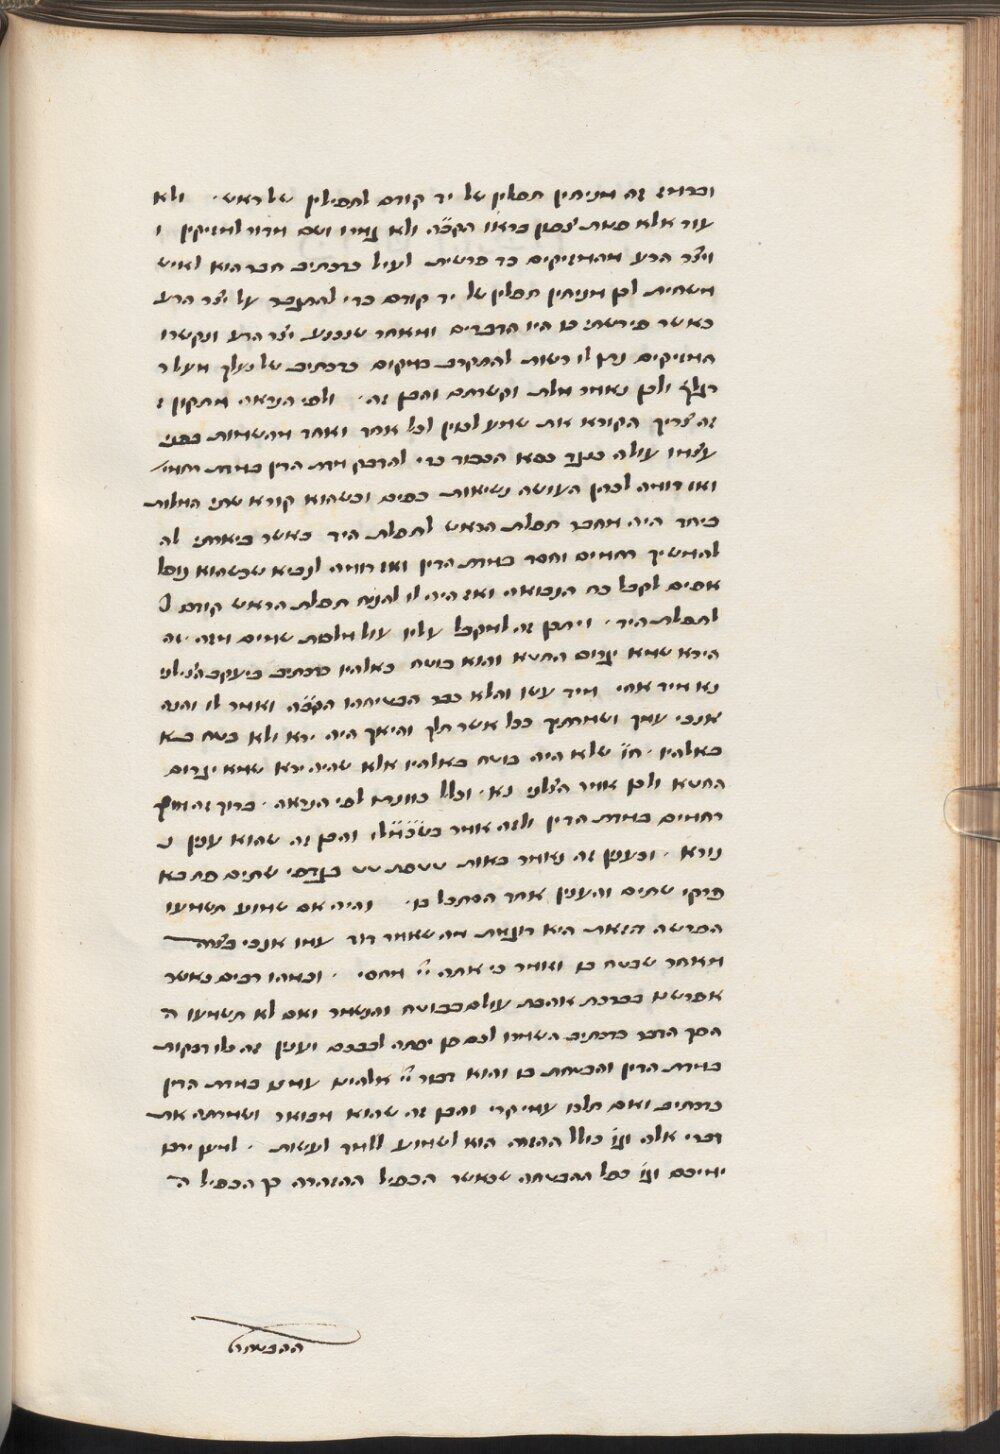 וברמז זה מניחין תפלין של יד קודם לתפילין של ראש . ולא
עוד אלא פאת צפון בראו הקב״ה ולא גמרו ושם מדור למזיקין ו
ויצר הרע מהמזיקים כד פרשית לעיל כדכתיב חבר הוא לאיש
משחית לכן מניחין תפלין של יד קודם כדי להתגבר על יצר הרע
כאשר פירשתי כן היו הדברים ומאחר שנכנע יצר הרע ונקשרו
המזיקים נתן לו רשות להתקרב במקום כדכתיב של נעלך מעל ר
רגלך ולכן נאמר מלת וקשרתם והבן זה . ולפי הנראה מתקון ז
זה צריך הקורא את שמע לכוין לכל אחד ואחד מהשמות כפני
עצמו עולה כנגד כסא הכבוד כדי להדבק מדת הדין במדת רחמי׳
ואז דומה לכהן העושה נשיאות כפים וכשהוא קורא שתי המלות
ביחד היה מחבר תפלת הראש לתפלת היד כאשר ביארתי לה
להמשיך רחמים וחסד במדת הדין ואז דומה לנביא שכשהוא נופל
אפים לקבל כח הנבואה ואז היה לו להניח תפלת הראש קודם ל
לתפלת היד . ויתכן זה למקבל עליו עול מלכות שמים מזה .זה
הירא שמא יגרום החטא והוא בוטח באלהיו כדכתיב ביעקב הצילני
נא מיד אחי מיד עשו והלא כבר הבטיחהו הקב״ה ואמר לו והנה
אנכי עמך ושמרתיך בכל אשר תלך והיאך היה ירא ולא בטח בא
באלהיו . ח״ו שלא היה בוטח באלהיו אלא שהיה ירא שמא יגרום
החטא ולכן אמר הצילני נא . וכלל כוונתי לפי הנראה . ברוך זה
רחמים במדת הדין ולזה אומר בשכמל״ו והבן זה שהוא ענין נ
נורא . וכענין זה נאמר באות
פרקי שתים והענין אחד הסתכל בו . והיה אם שמוע תשמעו
הפרשה הזאת היא דוגמת מה שאמר דוד עמו אנכי בצרה
מאחר שבטח בו ואמר כי אתה יי׳ מחסי . וכמהו רבים כאשר
אפרשם בברכת אהבת עולם בבוטח והנשמר ואם לא תשמעו ה
הפך הדבר כדכתיב השמרו לכם פן יפתה לבבכם וענין זה כלו דבקות
במדת הדין והבטחת בו והוא דבר יי׳ אלהים עמים במדת הדין
כדכתיב ואם תלכו עמי קרי והבן זה שהוא מבואר ושמתם את
דברי אלה וגו׳ כולל ההזהרה הוא לשמוע ללמד לעשות . למען ירבו
ימיכם וגו׳ כפל ההבטחה שכאשר הכפיל ההזהרה כך הכפיל ה
ההבטחה